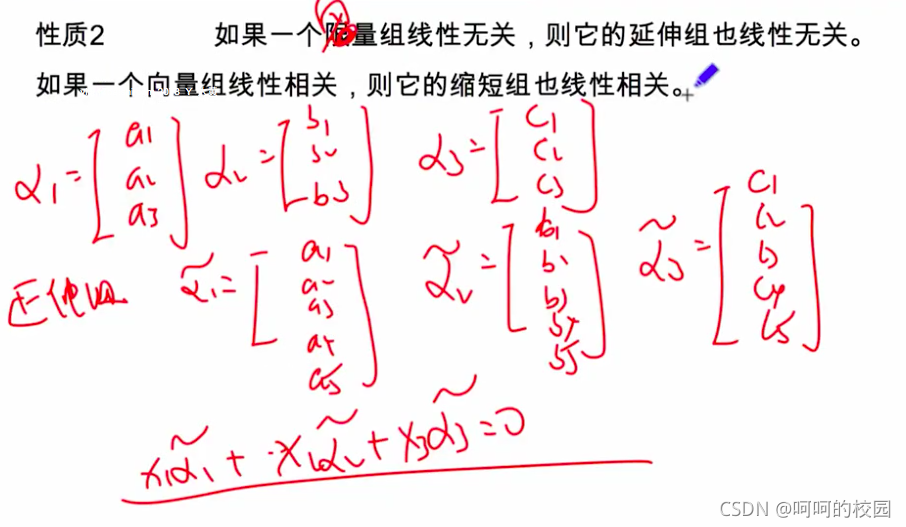 性质2 如果一个量组线性无关，则它的延伸组也线性无关。
如果一个向量组线性相关，则它的缩短组也线性相关。
α1=[a1 a2 a3] α2=[b1 b2 b3] α3=[c1 c2 c3]
α̃1=[a1 a2 a3 a4 a5] α̃2=[b1 b2 b3 b4 b5] α̃3=[c1 c2 c3 c4 c5]
x1α̃1+x2α̃2+x3α̃3=0
CSDN @呵呵的校园